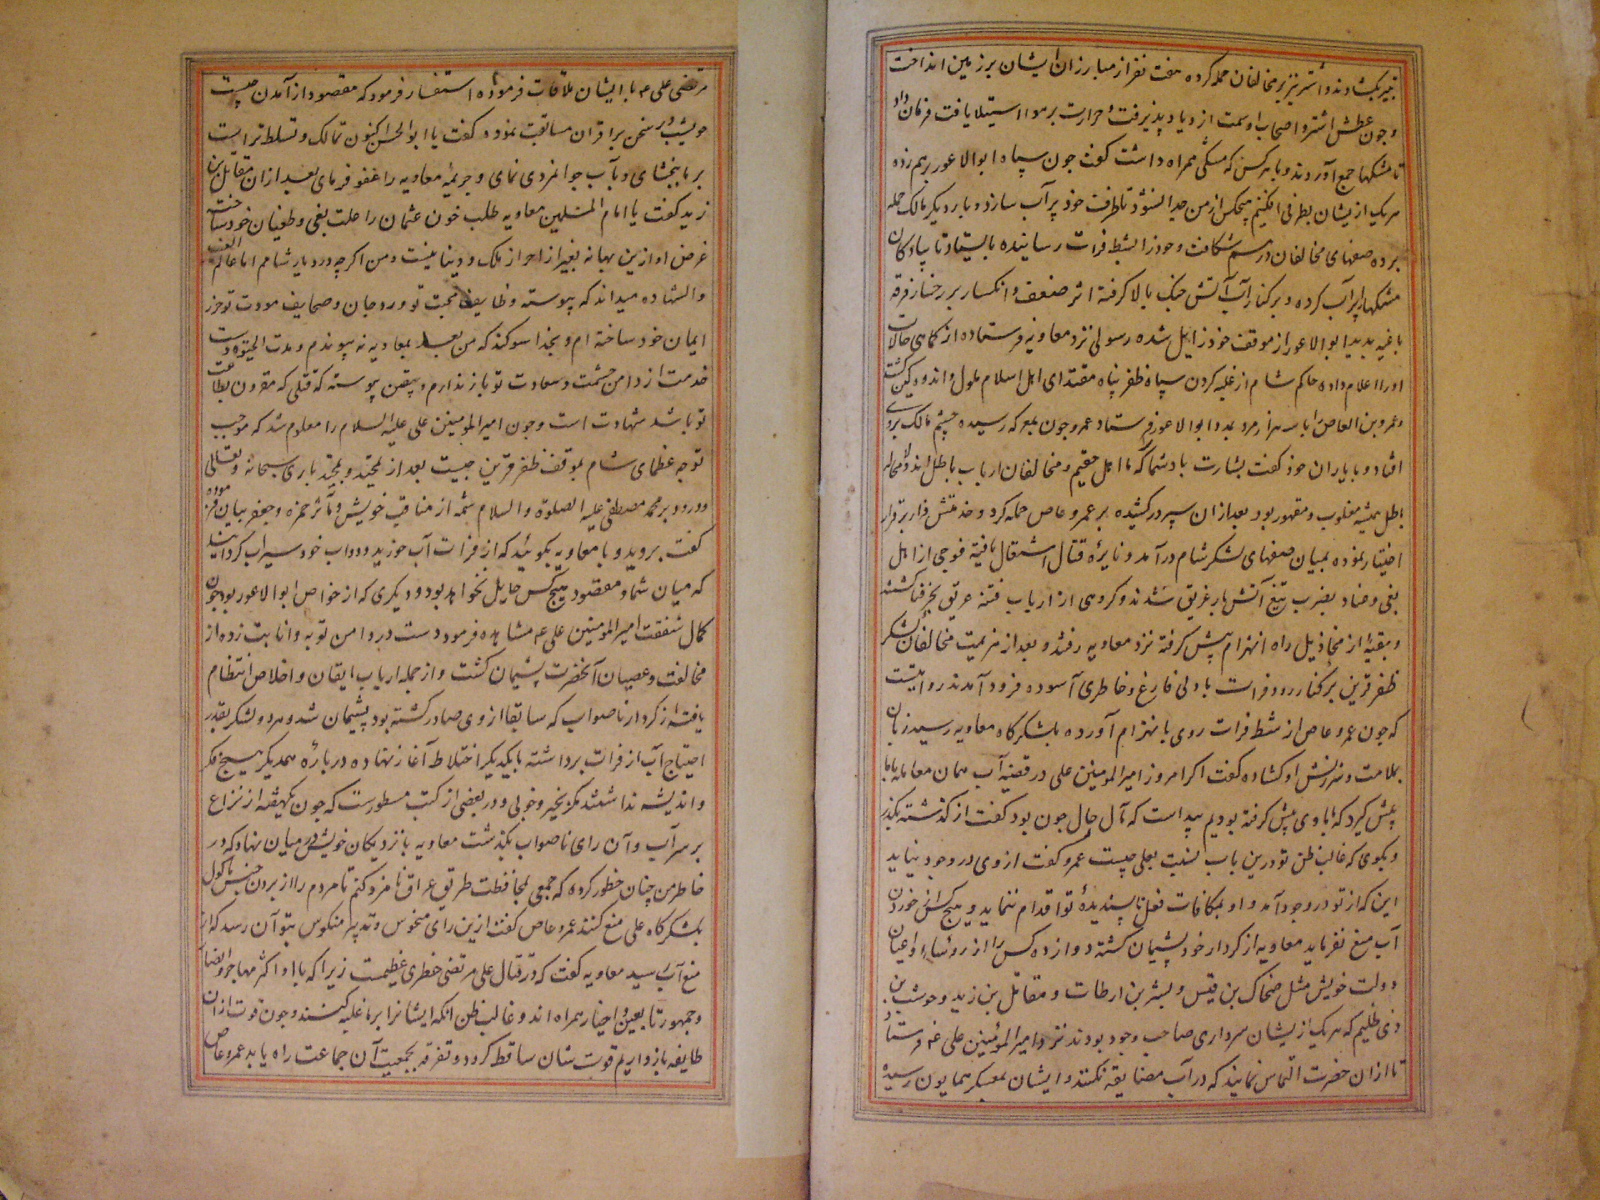 تیر بکشادند و اشتر نیز بر مخالفان حمله کرده هفت نفر از مبارزان ایشان بر زمین انداخت
و چون عطش اشتر و اصحاب او سمت ازدیاد پذیرفت و حرارت بر هوا استیلا یافت فرمان داد
تا مشکها جمع آوردند و با هر کس که مشکی همراه داشت گفت چون سپاه ابوالاعور بر هم زده
هر یک از ایشان بطرفی افکنیم هیچکس از من جدا نشود تا ظرف خود پر آب سازد و بار دیگر مالک حمله
برده صفهای مخالفان در هم شکافت و خود را بشط فرات رسانیده بایستاد تا پیادگان
مشکها را پر آب کرده و بر کنار آب آتش جنگ بالا گرفته اثر ضعف و انکسار بر رخسار فرقه
باغیه پدید ابوالاعور از موقف خود زایل شده رسولی نزد معاویه فرستاده از کماهی حالات
او را اعلام داده حاکم شام از غلبه کردن سپاه ظفر پناه مقتدای اهل اسلام ملول و اندوهگین گشت
و عمرو بن العاص را با سه هزار مرد بمدد ابوالاعور فرستاد عمرو چون بمعرکه رسیده چشم مالک بروی
افتاد و با یاران خود گفت بشارت باد شما که ما اهل حقیم و مخالفان ارباب باطل اند و لا محاله
باطل همیشه مغلوب و مقهور بود بعد از آن سپر در کشیده بر عمرو عاص حمله کرد و خدمتش فرار بر قرار
اختیار نموده بمیان صفهای لشکر شام در آمد و نایره قتال اشتعال یافته فوجی از اهل
بغی و عناد بضرب تیغ آتش بار غریق شدند و گروهی از ارباب فتنه غریق بحر فنا گشتند
و بقیه از مخاذیل راه انهزام پیش گرفته نزد معاویه رفتند و بعد از هزیمت مخالفان لشکر
ظفر قرین بر کنار رود فرات با دلی فارغ و خاطری آسوده فرود آمدند روایتست
که چون عمرو عاص از شط فرات روی بانهزام آورده بلشکرگاه معاویه رسید زبان
بملامت و سرزنش او گشاده گفت اگر امروز امیر المومنین علی در قضیه آب همان معامله با ما
پیش گیرد که ما با وی پیش گرفته بودیم پیداست که مآل حال چون بود گفت از گذشته بگذر
و بگوی که غالب ظن تو درین باب نسبت بعلی چیست عمرو گفت از وی در وجود نیاید
این که از تو در وجود آمد و او بمکافات فعل ناپسندیده تو اقدام ننماید و هیچ کس را از خوردن
آب منع نفرماید معاویه از کردار خود پشیمان گشته دوازده کس را از رؤساء و اعیان
دولت خویش مثل ضحاک بن قیس و بشر بن ارطات و مقاتل بن زید و حوشب بن
ذی ظلیم که هر یک از ایشان سرداری صاحب وجود بودند نزد امیر المؤمنین علی ع فرستاد
تا از آن حضرت التماس نمایند که در آب مضایقه نکنند و ایشان بمعسکر همایون رسیده
مرتضی علی ع با ایشان ملاقات فرموده استفسار فرمود که مقصود از آمدن چیست
حوشب در سخن بر اقران مسابقت نموده گفت یا ابو الحسن اکنون تمالک و تسلط تراست
بر ما ببخشای و بآب جوانمردی نمای و جریمه معاویه را عفو فرمای بعد از ان مقاتل بن
زید گفت یا امام المسلمین معاویه طلب خون عثمان را علت بغی و طغیان خود ساخته
غرض او ازین بهانه بغیر از احراز ملک و دنیا نیست و من اگرچه در دیار شامم اما عالم الغیب
و الشهاده میداند که پیوسته وظایف محبت تو ورد جان و صحایف مودت تو حرز
ایمان خود ساخته ام و بخدا سوگند که من بعد بمعاویه نه پیوندم و مدت الحیوة دست
خدمت از دامن حشمت و سعادت تو باز ندارم و بیقین پیوسته که قتلی که مقرون بطاعت
تو باشد شهادت است و چون امیر المومنین علی علیه السلام را معلوم شد که موجب
توجه عظمای شام بموقف ظفر قرین چیست بعد از تحمید و تمجید باری سبحانه و تعالی
و درود بر محمد مصطفی علیه الصلوة و السلام شمه از مناقب خویش و مآثر حمزه و جعفر بیان فرموده
گفت بروید و با معاویه بگوئید که از فرات آب خورید و دواب خود سیراب گردانید
که میان شما و مقصود هیچ کس حایل نخواهد بود و دیگری که از خواص ابوالاعور بود چون
کمال شفقت امیر المومنین علی ع مشاهده فرمود دست در دامن توبه و انابت زده از
مخالفت و عصیان آنحضرت پشیمان گشت و از جمله ارباب ایقان و اخلاص انتظام
یافته از کردار ناصواب که سابقا از وی صادر گشته بود پشیمان شد و هر دو لشکر بقدر
احتیاج آب از فرات برداشته با یکدیگر اختلاط آغاز نهاده درباره همدیگر هیچ فکر
و اندیشه نداشتند مگر بخیر و خوبی و در بعضی از کتب مسطورست که چون یکهفته از نزاع
بر سر آب و آن رای ناصواب بگذشت معاویه با نزدیکان خویش در میان نهاد که در
خاطر من چنان خطور کرده که جمعی بمحافظت طریق عراق نامزد کنم تا مردم را از بردن جنس ماکول
بلشکرگاه علی منع کنند عمرو عاص گفت ازین رای منحوس و تدبیر منکوس بتو آن رسد که از
منع آب رسید معاویه گفت که در قتال علی مرتضی خطری عظیمست زیرا که با او اکثر مهاجر و انصار
و جمهور تابعین و اخیار همراه اند و غالب ظن آنکه ایشانرا بر ما غلبه کنند و چون قوت از آن
طایفه باز داریم قوت شان ساقط گردد و تفرقه بجمعیت آن جماعت راه یابد عمرو عاص